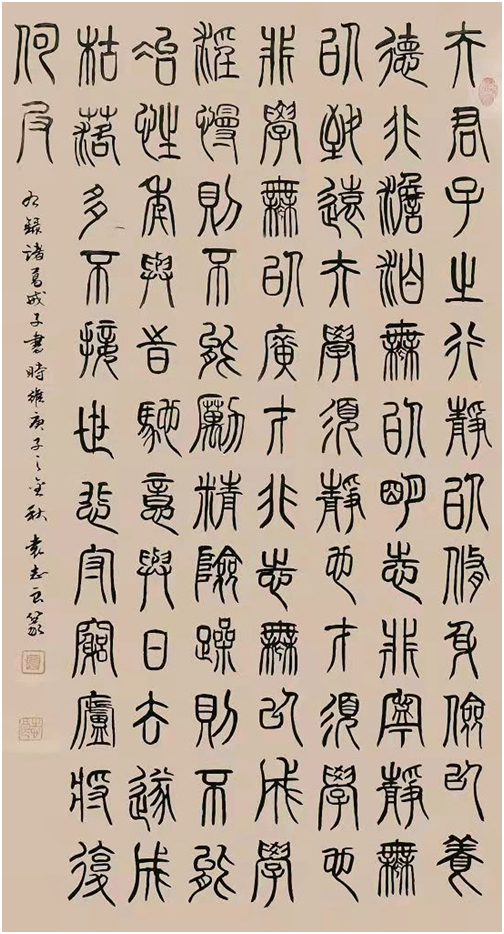 夫君子之行靜以脩身儉以養
德非澹泊無以明志非寧靜無
以致遠夫學須靜也才須學也
非學無以廣才非志無以成學
淫慢則不能勵精險躁則不能
冶性年與旹馳意與日去遂成
枯落多不接世悲守窮廬將復
何及
右録諸葛戒子書時維庚子之金秋袁志篆